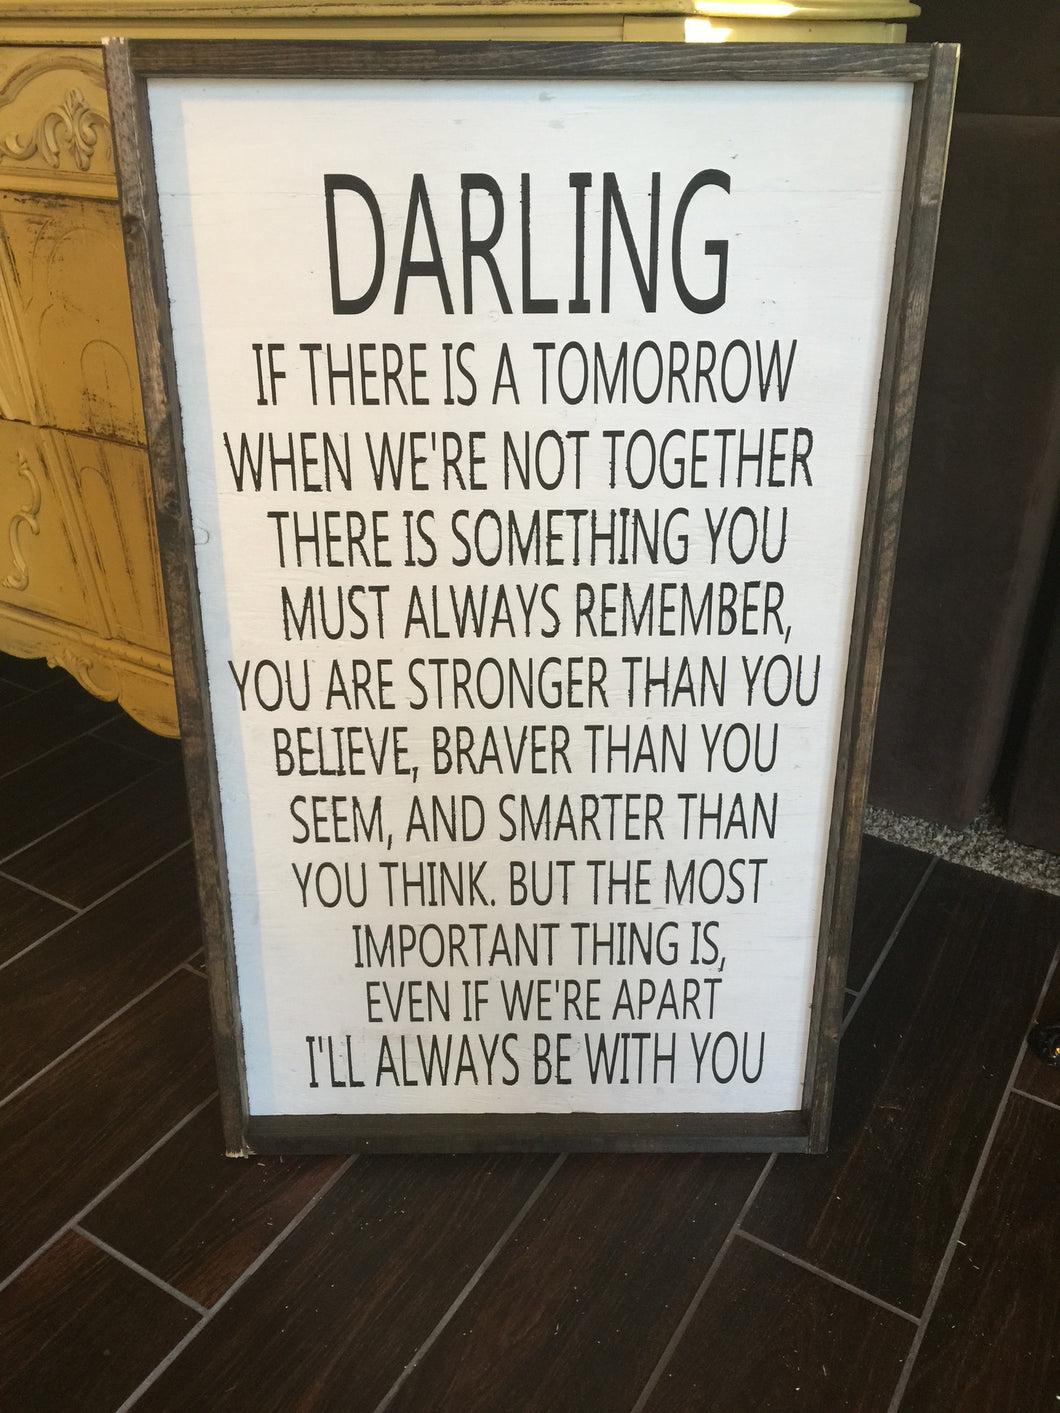 DARLING
IF THERE IS A TOMORROW
WHEN WE'RE NOT TOGETHER
THERE IS SOMETHING YOU
MUST ALWAYS REMEMBER,
YOU ARE STRONGER THAN YOU
BELIEVE, BRAVER THAN YOU
SEEM, AND SMARTER THAN
YOU THINK. BUT THE MOST
IMPORTANT THING IS,
EVEN IF WE'RE APART
I'LL ALWAYS BE WITH YOU